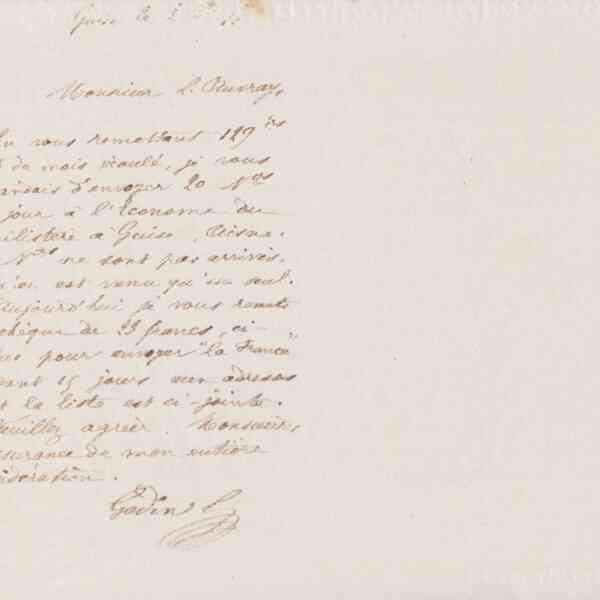 Guise le
Monsieur L. Ouvray,
vous remettant 129 frs
de mois écoulé, je vous
d'envoyer 20 Nos
jour à l'Econome du
à Guise, Aisne.
Nos ne sont pas arrivés,
est venu qu'un seul.
Aujourd'hui je vous remets
chèque de 23 francs, ci-
pour envoyer "la France"
15 jours aux adresses
la liste est ci-jointe.
Veuillez agréer, Monsieur,
assurance de mon entière
Godin